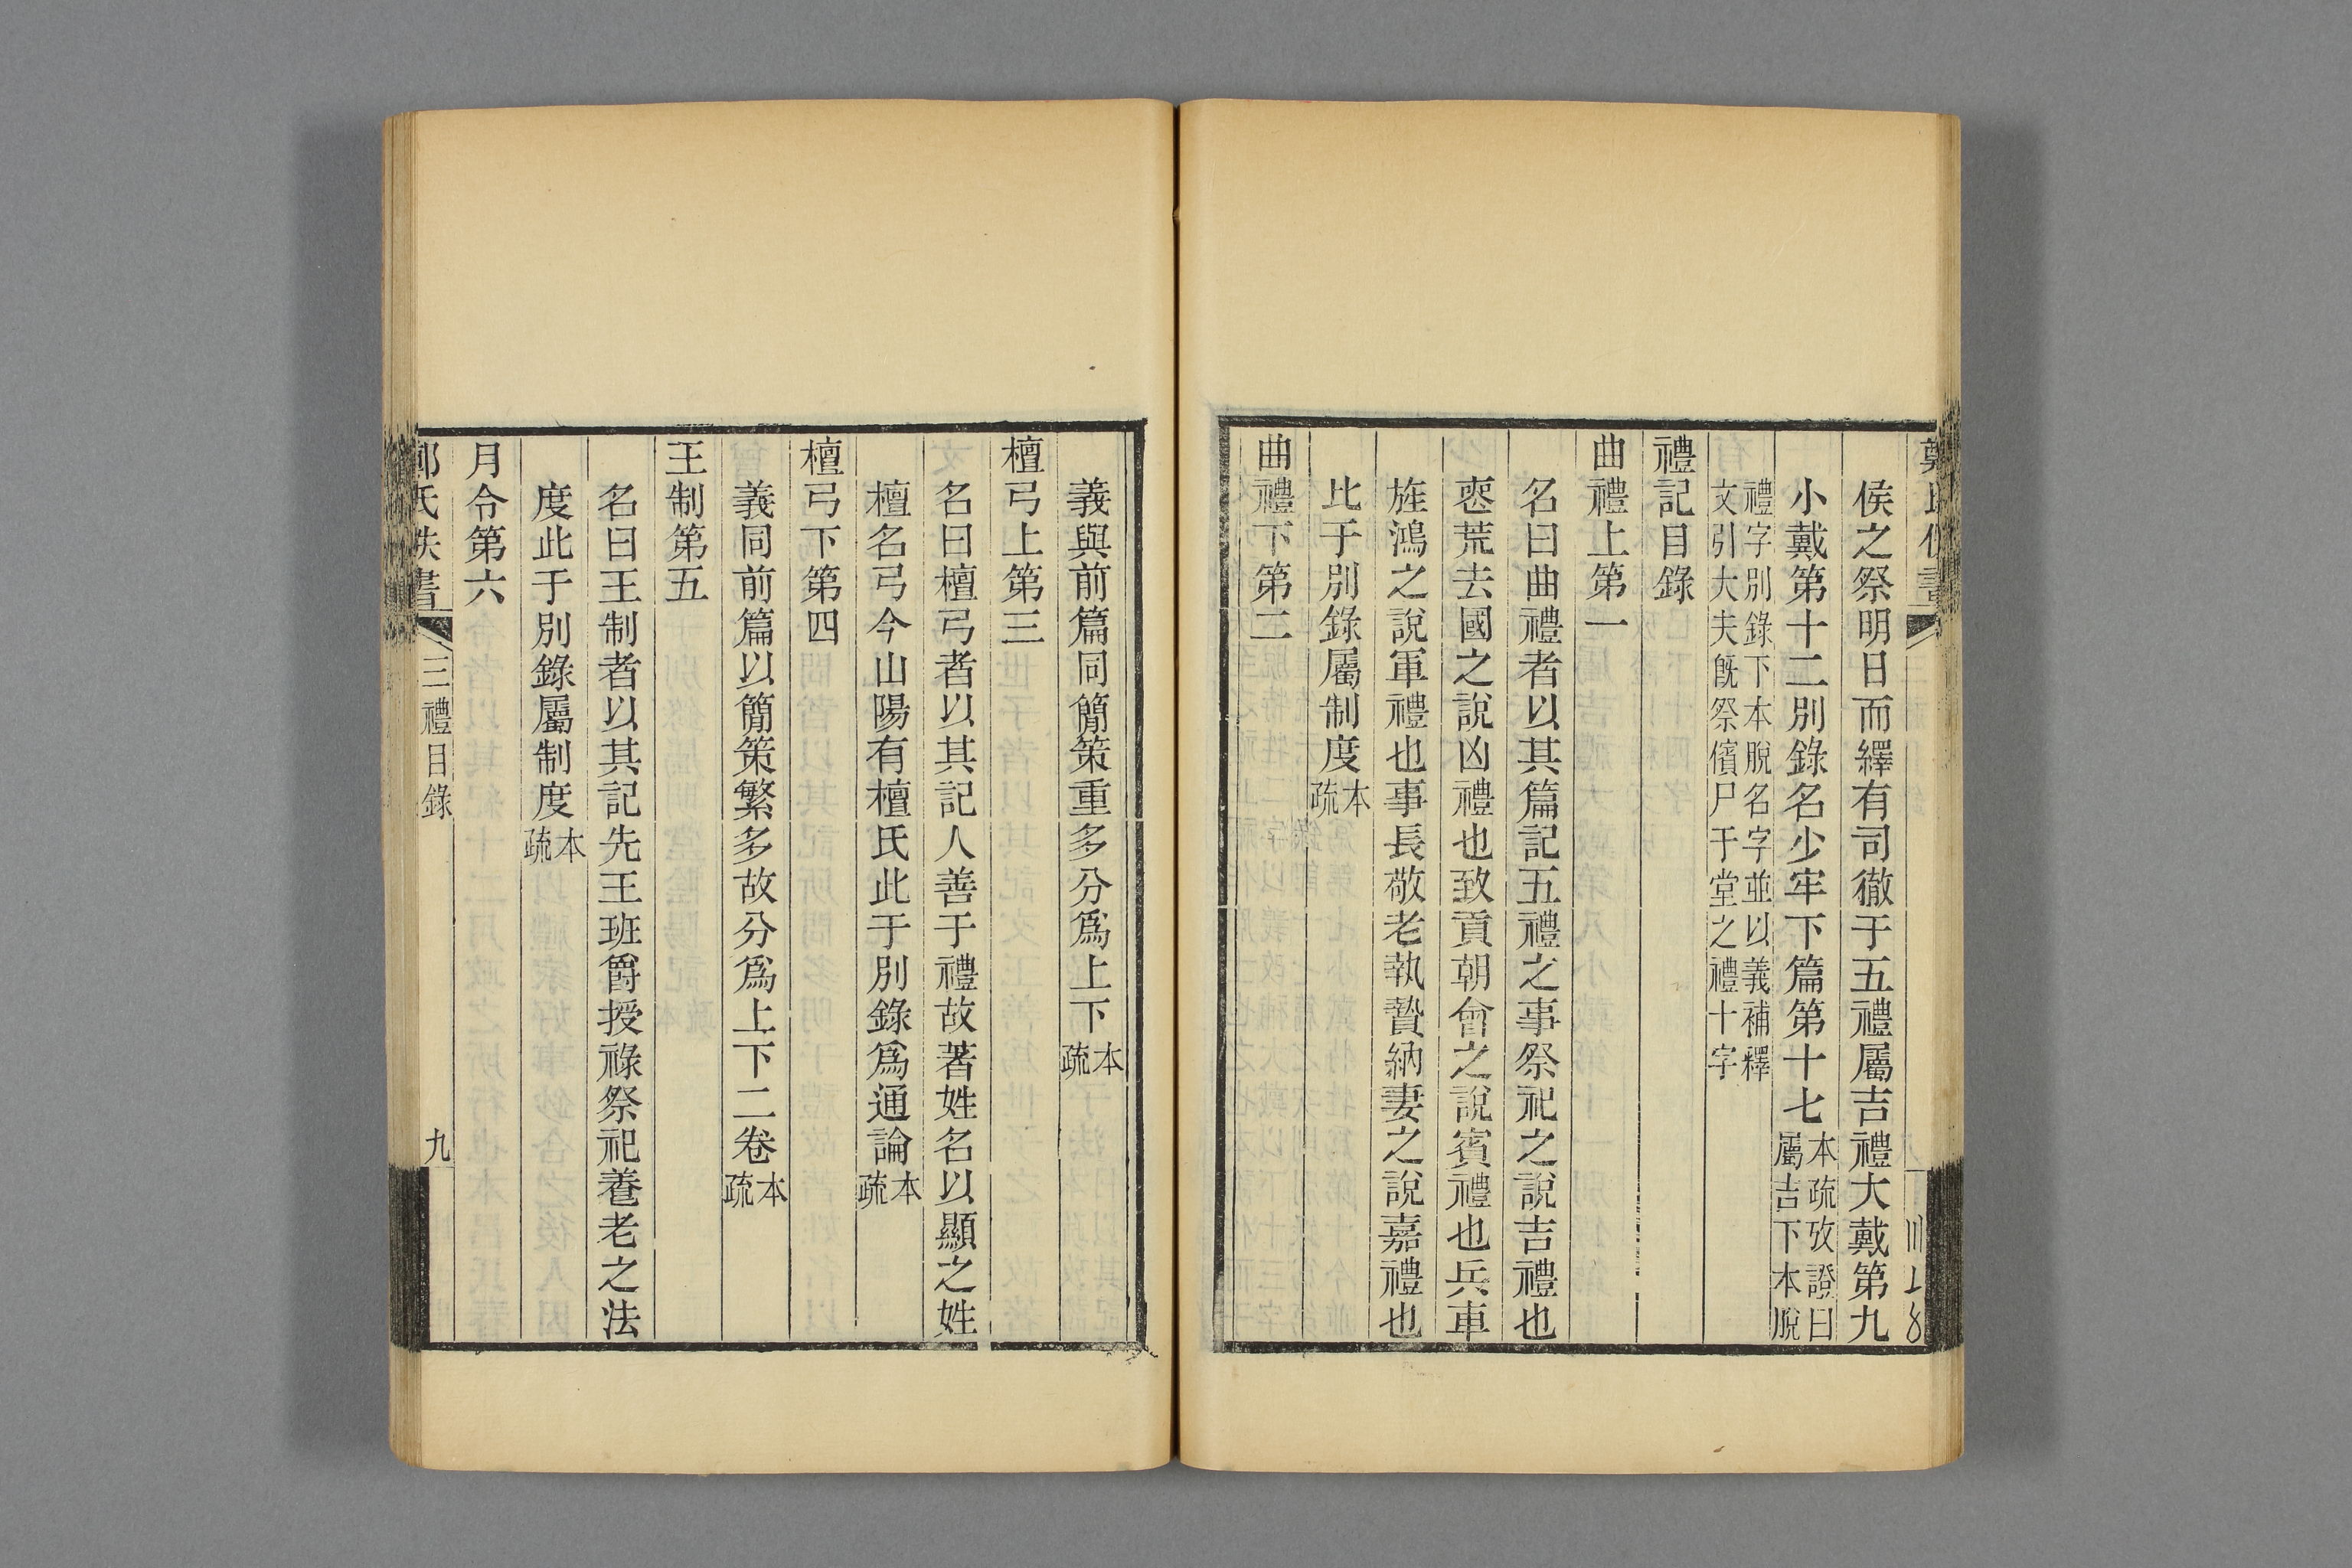 侯之祭明日而繹有司徹于五禮屬吉禮大戴第九
小戴第十二別錄名少牢下篇第十七本疏攷證曰屬吉下本脫
禮字別錄下本脫名字並以義補釋
文引大夫旣祭儐尸于堂之禮十字
禮記目錄
曲禮上第一
名曰曲禮者以其篇記五禮之事祭祀之說吉禮也
喪荒去國之說凶禮也致貢朝會之說賓禮也兵車
旌鴻之說軍禮也事長敬老執贄納妻之說嘉禮也
比于別錄屬制度本疏
曲禮下第二
義與前篇同簡策重多分爲上下本疏
檀弓上第三
名曰檀弓者以其記人善于禮故著姓名以顯之姓
檀名弓今山陽有檀氏此于別錄爲通論本疏
檀弓下第四
義同前篇以簡策繁多故分爲上下二卷本疏
王制第五
名曰王制者以其記先王班爵授祿祭祀養老之法
度此于別錄屬制度本疏
月令第六
氏佚書 三禮目錄 九